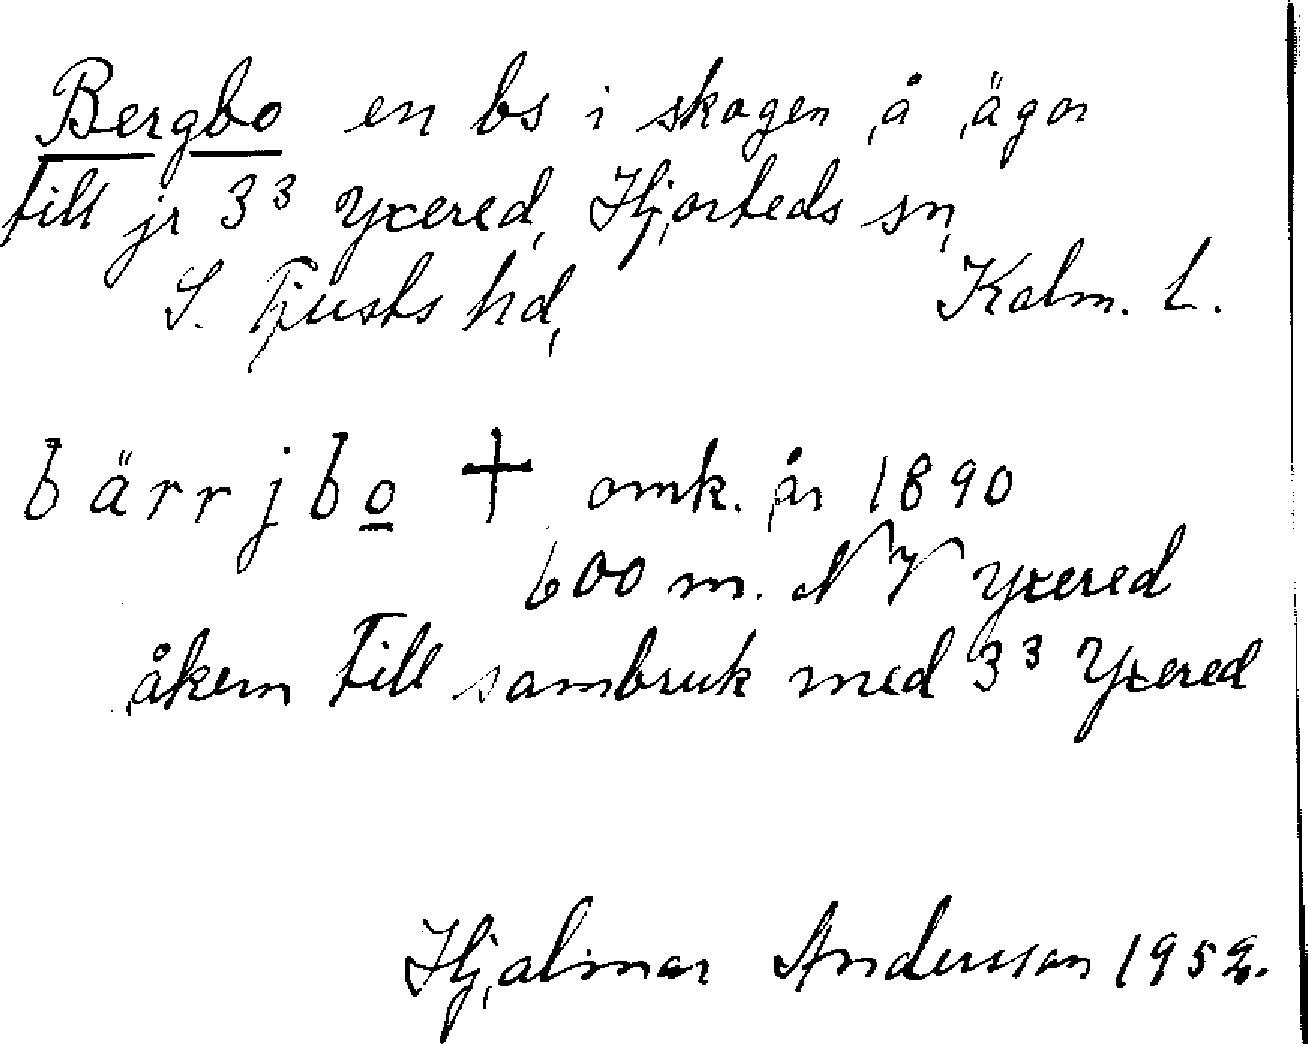 Bergbo en bs i skogen å ägor
till jr 3³ Yxered, Hjorteds sn,
S. Tjusts hd, Kalm. L.
bärrjbo † omk. år 1890
600 m. NV Yxered
åkern till sambruk med 3³ Yxered
Hjalmar Andersson 1952.